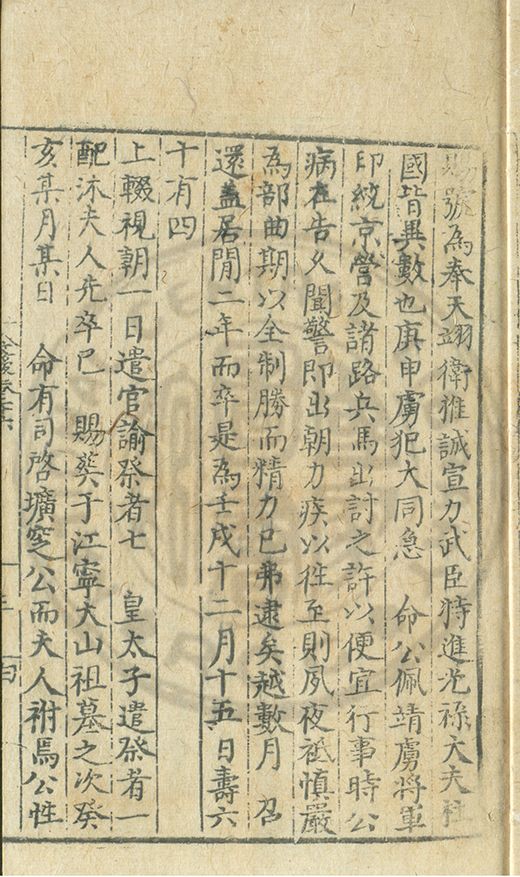 賜號為奉天翊衛推誠宣力武臣特進光祿大夫柱
國皆異數也庚申虜犯大同急　命公佩靖虜將軍
印統京營及諸路兵馬出討之許以便宜行事時公
病在告久聞警即出朝力疾以往至則夙夜祗慎嚴
為部曲期以全制勝而精力已弗逮矣越數月　召
還盖居閒二年而卒是為壬戌十二月十五日壽六
十有四
上輟視朝一日遣官諭祭者七　皇太子遣祭者一
配沐夫人先卒已　賜葬于江寧大山祖墓之次癸
亥某月某日　命有司啓壙窆公而夫人祔焉公性